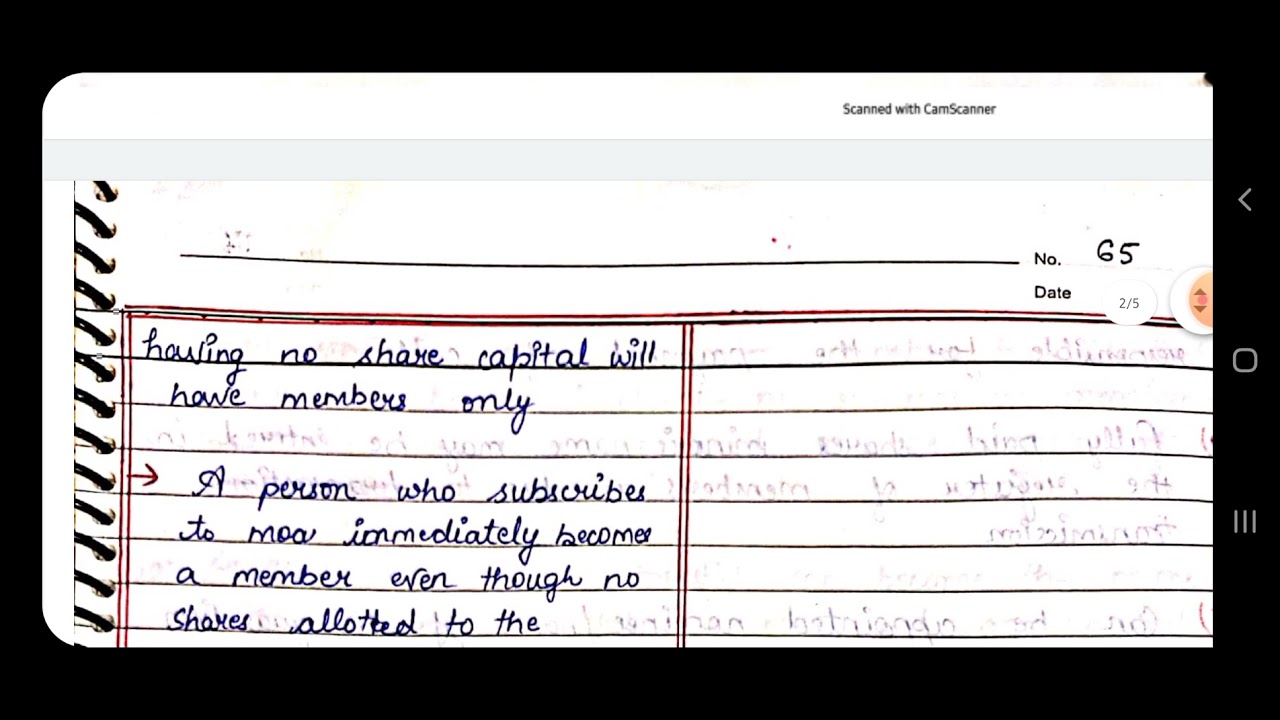 Scanned with CamScanner
No. 65
Date
2/5
having no share capital will
have members only
→ A person who subscribes
to moa immediately becomes
a member even though no
shares allotted to the